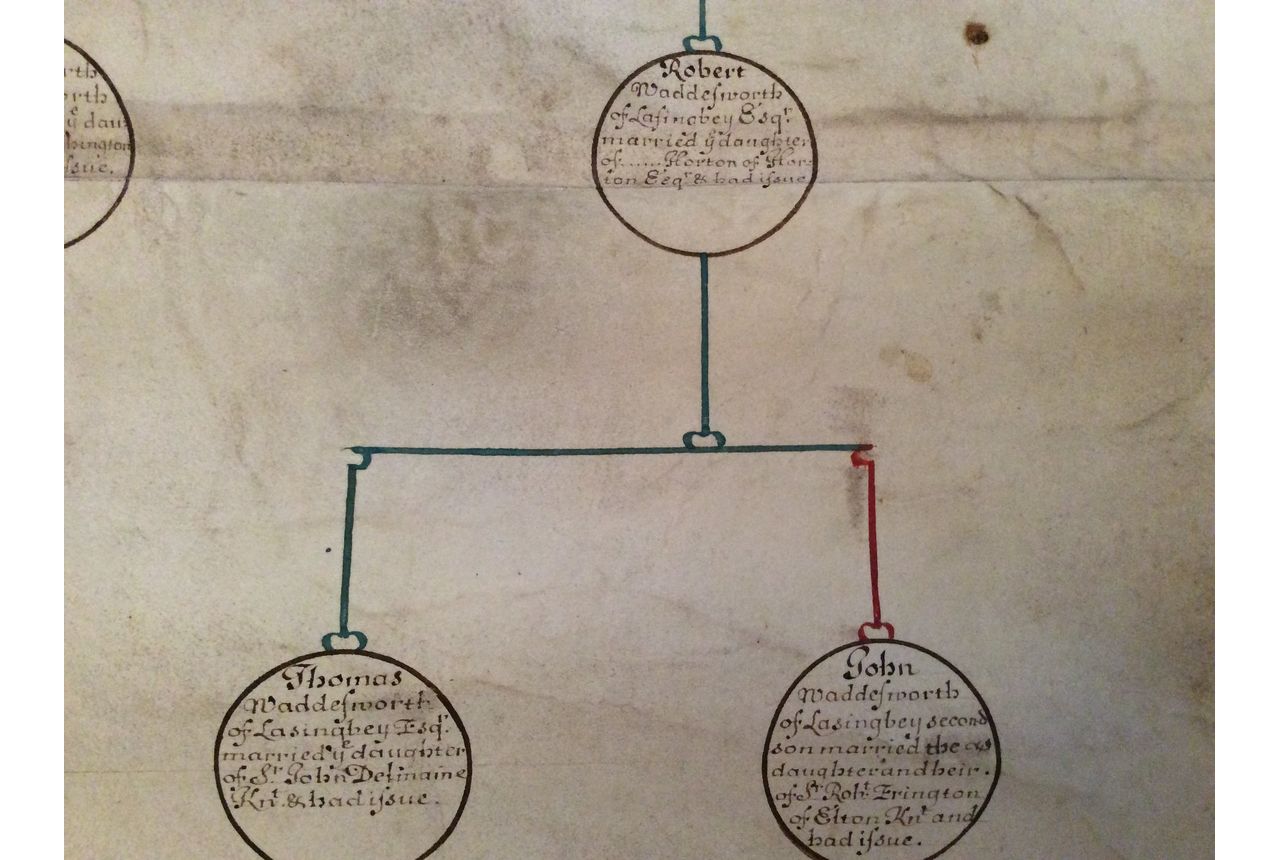 rth
rth
yͤ dau
hington
iſsue.
Robert
Waddeſworth
of Laſingbey Esqʳ
married yͤ daughter
of...... Horton of Hor-
ton Esqʳ & had iſsue
Thomas
Waddeſworth
of Lasingbey Esqʳ.
married yͤ daughter
of Sʳ John Delinaine
Knᵗ. & had iſsue.
John
Waddeſworth
of Lasingbey second
son married the
daughter and heir.
of Sʳ Robᵗ. Erington
of Elton Knᵗ and
had iſsue.